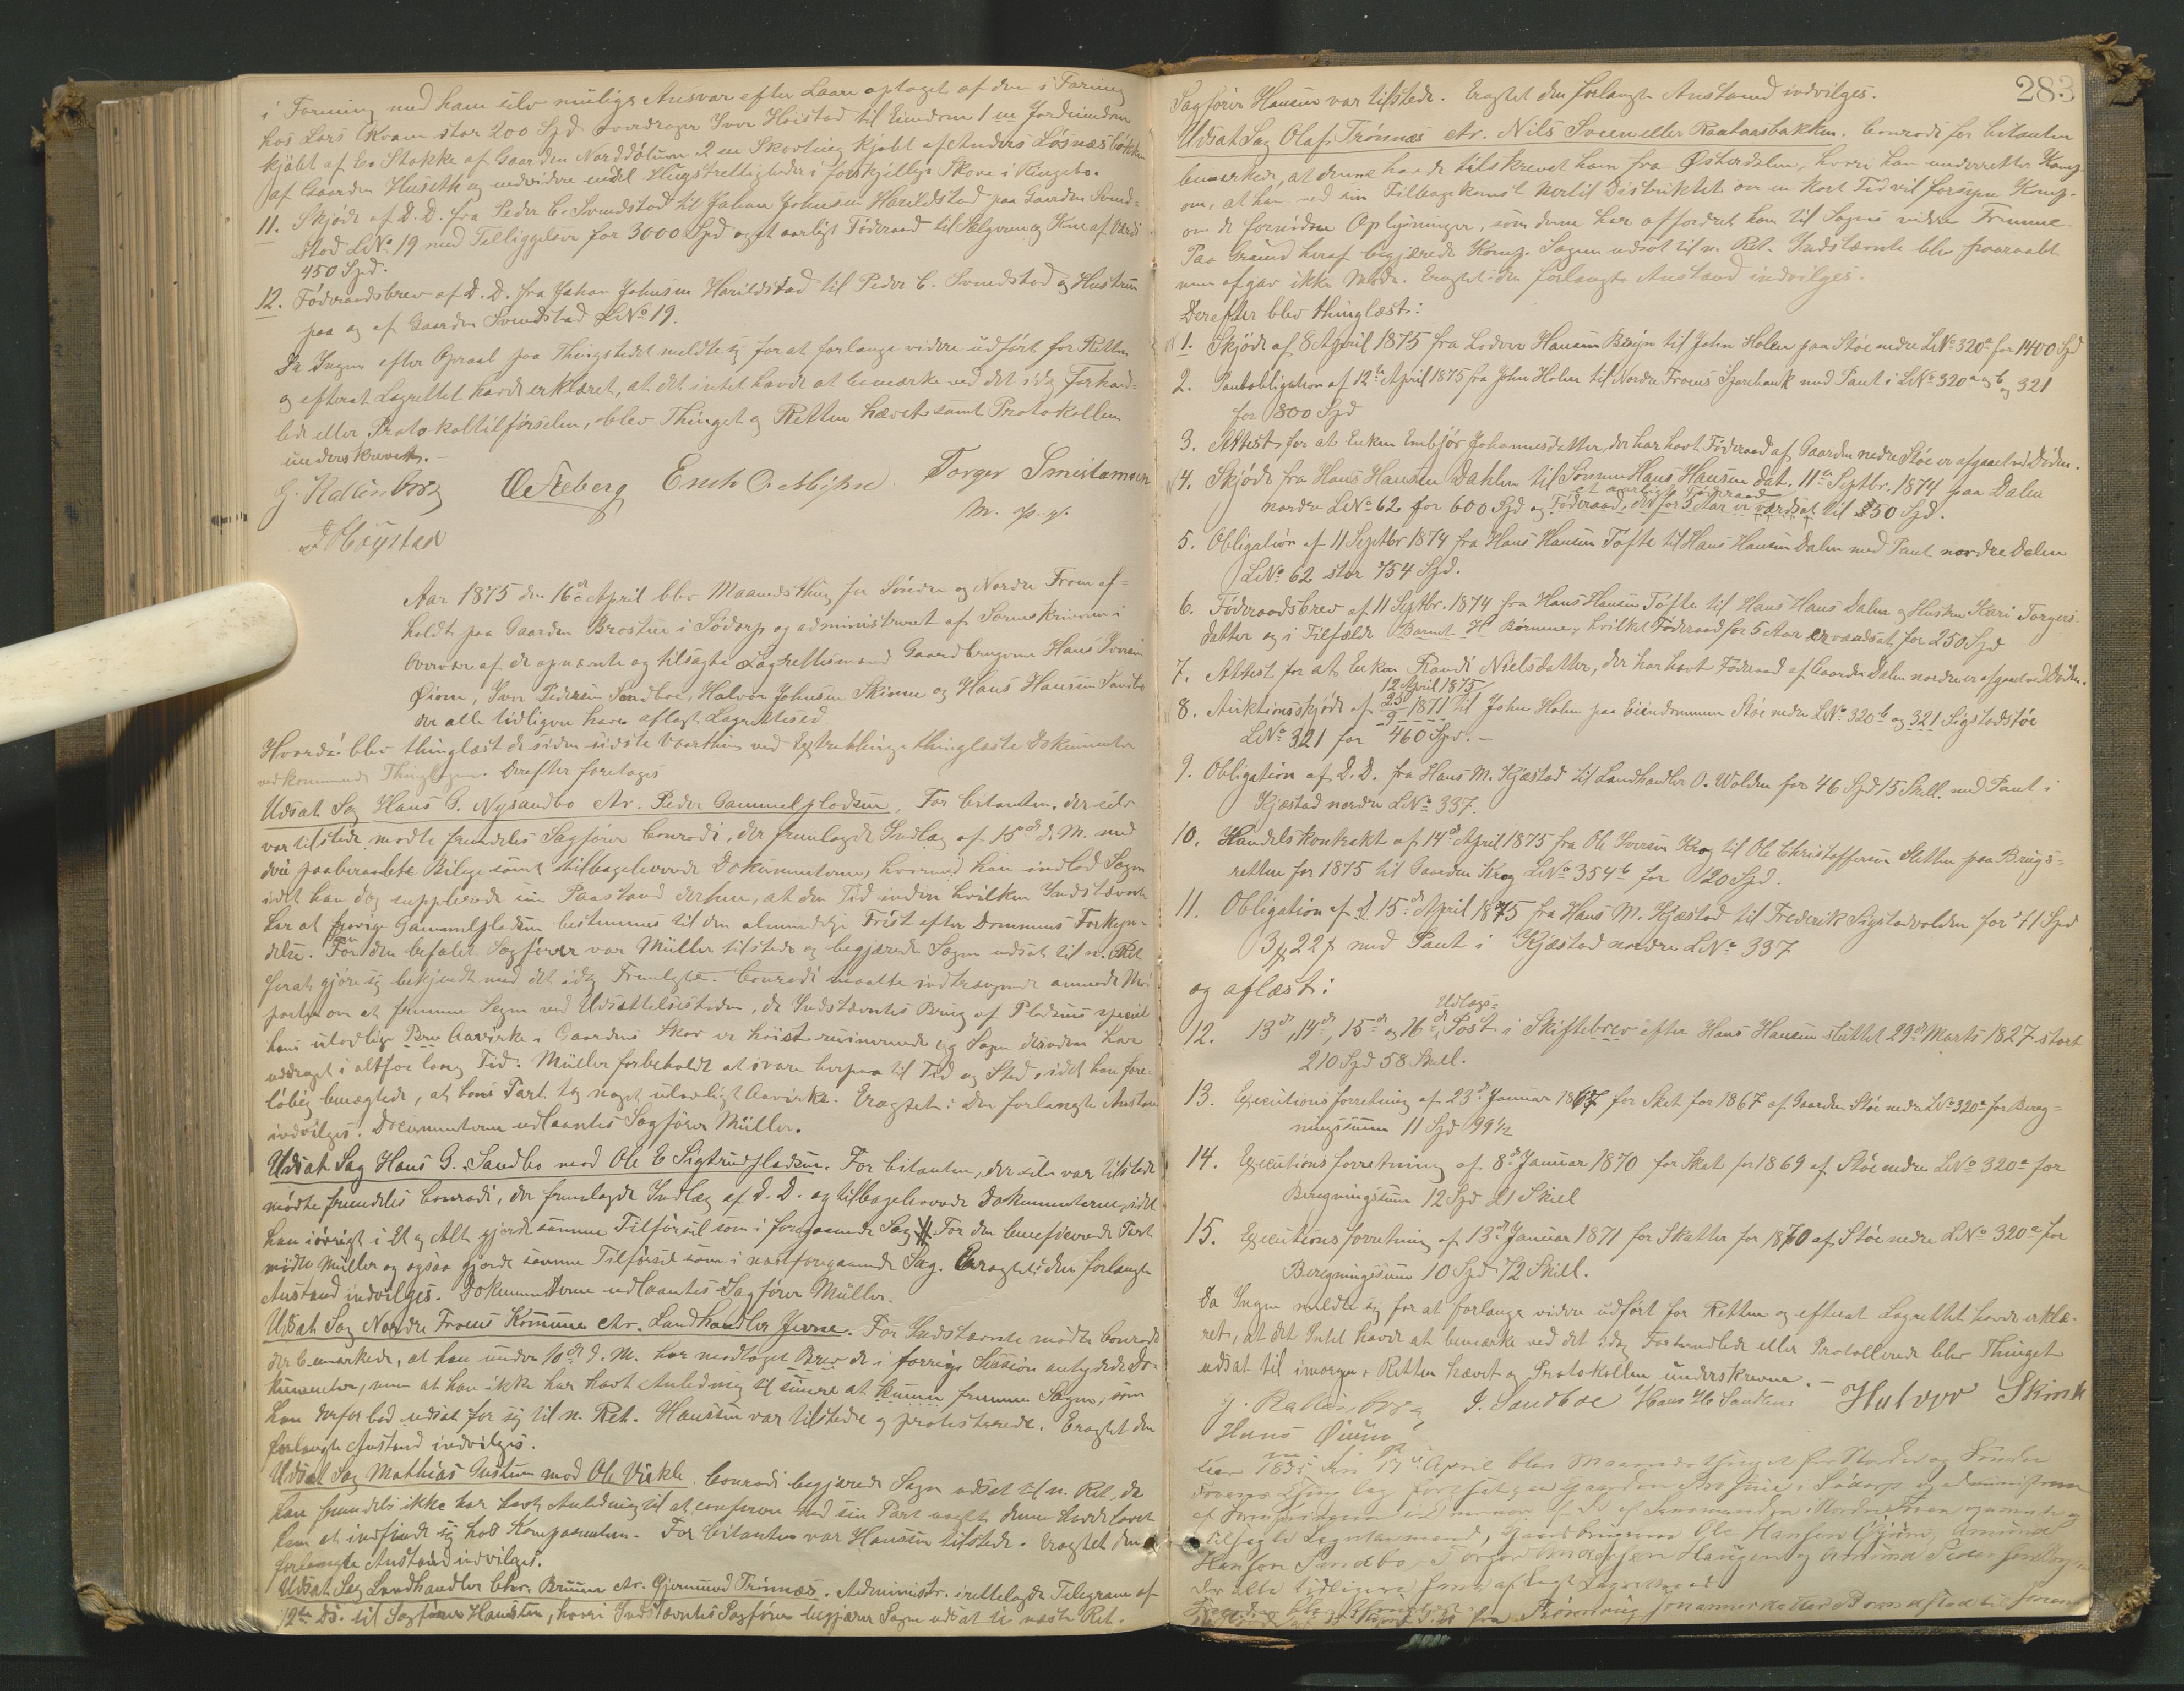 i Forening med ham selv mulige Ansvar efter Laan optaget af dem i Forening
hos Lars Kvam stor 200 Spd overdrager Iver Høistad til Eiendom 1 en Jordeiendom
kjøbt af Stokke af Gaarden Norddølum 2 en Skovteig kjøbt af Anders Løsnæsbakken
af Gaarden Huseth og endvidere endel Hugstrettigheder i forskjellige Skove i Ringebo.
11. Skjøde af D. D. fra Peder C. Svendstad til Johan Johnsen Harildstad paa Gaarden Svend-
stad LNo 19 med Tilliggelser for 3000 Spd og et aarligt Føderaad til Sælgeren og Kone af Værdi
450 Spd.
12. Føderaadsbrev af D. D. fra Johan Johnsen Harildstad til Peder C. Svendstad og Hustru
paa og af Gaarden Svendstad LNo 19.
Da Ingen efter Opraab paa Thingstedet meldte sig for at forlange videre udført for Retten
og efterat Lagrettet havde erklæret, at det intet havde at bemærke ved det idag Forhand-
lede eller Protokoltilførselen, blev Thinget og Retten hævet samt Protokollen
underskrevet. -
G. Kallenborg O. Steberg Torger Smestamoen
m. p. p.
Høystad
Aar 1875 den 16de April blev Maanedsthing for Søndre og Nordre Fron af-
holdt paa Gaarden Brostue i Sødorp og administreret af Sorenskriveren i
Overvær af de opnævnte og tilsagte Lagrettesmænd Gaardbrugerne Hans Iversen
Øien, Iver Pedersen Sandboe, Halvor Johnsen Skinne og Hans Hansen Sandbo
der alle tidligere have aflagt Lagrettesed.
Hvorda blev thinglæst de siden sidste Vaarthing ved Extrathinge thinglæste Dokumenter
vedkommende Thinglaget. Derefter foretages
Udsat Sag Hans G. Nysandbo ctr. Peder Gammelpladsen. For Citanten, der selv
var tilstede mødte fremdeles Sagfører Conradi, der fremlagde Indlæg af 15de d. M. med
deri paaberaabte Bilage samt tilbageleverede Dokumenterne, hvormed han indlod Sagen
idet han dog supplerede sin Paastand derhen, at den Tid inden hvilken Indstævnte
har at fravige Gammelpladsen bestemmes til den almindelige Frist efter Dommens Forkyn-
delse. For den befalet Sagfører var Müller tilstede og begjærede Sagen udsat til n. Ret
forat gjøre sig bekjendt med det idag Fremlagte. Conradi maatte indtrængende anmode Mod-
parten om at fremme Sagen ved Udsættelsestiden, da Indstævntes Brug af Pladsens specielt
hans ulovlige Aavirke i Gaardens Skov er høist ruinerende og Sagen desuden har
uddraget i altfor lang Tid. Müller forbeholdt at svare herpaa til Tid og Sted, idet han fore-
løbig benægtede, at hans Part tog noget ulovligt Aavirke. Eragtet: Den forlangte Anstand
indvilges. Documenterne udlaantes Sagfører Müller.
Udsat Sag Hans G. Sandbo mod Ole E Sigstadpladsen. For Citanten, der selv var tilstede
mødte fremdeles Conradi, der fremlagde Indlæg af D. D. og tilbageleverede Dokumenterne, idet
han iøvrigt i Et og Alt gjorde samme Tilførsel som i foregaaende Sag. For den beneficerede Part
mødte Müller og ogsaa gjorde samme Tilførsel som i næstforegaaende Sag. Eragtet: Den forlangte
Anstand indvilges. Dokumenterne udlaantes Sagfører Müller.
Udsat Sag Nordre Frons Kommune ctr. Landhandler Jevne. For Indstævnte mødte Conradi
der bemærkede, at han under 10de d. M. har modtaget Brev de i forrige Session antydede Do-
kumenter, men at han ikke har havt Anledning til senere at kunne fremme Sagen, som
han derfor bad udsat for sig til n. Ret. Hansen var tilstede og protesterede. Eragtet den
forlangte Anstand indvilges.
Udsat Sag Mathias Gustum mod Ole Virkle. Conradi begjærede Sagen udsat til n. Ret, da
han fremdeles ikke har havt Anledning til at conferere med sin Part uagtet denne havde lovet
ham at indfinde sig hos Komparenten. For Citanten var Hansen tilstede. Eragtet den
forlangte Anstand indvilges.
Udsat Sag Landhandler Chr. Bruun ctr. Gjermund Trønnæs. Administr. irettelagde Telegram af
12te ds. til Sagfører Hansen, hvori Indstævntes Sagfører begjærer Sagen udsat til næste Ret.
283
Sagfører Hansen var tilstede. Eragtet den forlangte Anstand indvilges.
Udsat Sag Olaf Trønnæs ctr. Nils Sveen eller Raataasbakken. Conradi for Citanten
bemærkede, at denne havde tilskrevet ham fra Østerdalen, hvori han underretter Komp.
om, at han ved sin Tilbagekomst hertil Distriktet om en kort Tid vil forsyne Komp.
om de fornødne Oplysninger, som denne har affordret ham til Sagens videre Fremme.
Paa Grund heraf begjærede Komp. Sagen udsat til n. Ret. Indstævnte blev paaraabt
men afgav ikke Møde. Eragtet: den forlangte Anstand indvilges.
Derefter blev thinglæst:
1. Skjøde af 8 April 1875 fra Lodver Hansen Bryn til John Holen paa Støe nedre LNo 320a for 1400 Spd
2. Pantobligation af 12te April 1875 fra John Holen til Nordre Frons Sparebank med Pant i LNo 320a og b og 321
for 800 Spd
3. Attest for at Enken Embjør Johannesdatter, der har havt Føderaad af Gaarden nedre Støe er afgaaet ved Døden.
4. Skjøde fra Hans Hansen Dahlen til Sønnen Hans Hansen dat. 11te Septbr. 1874 paa Dalen
et aarligt Føderaad
nordre LNo 62 for 600 Spd og Føderaad, der for 5 Aar er værdsat til 250 Spd.
5. Obligation af 11 Septbr 1874 fra Hans Hansen Tofte til Hans Hansen Dalen med Pant nordre Dalen
LNo 62 stor 754 Spd.
6. Føderaadsbrev af 11 Septbr. 1874 fra Hans Hansen Tofte til Hans Hans Dalen og Hustru Kari Torgers-
datter og i Tilfælde Barnet Børnene, hvilket Føderaad for 5 Aar er værdsat for 250 Spd
7. Attest for at Enken Randi Nielsdatter, der har havt Føderaad af Gaarden Dalen nordre er afgaaet ved Døden.
12 April 1875
8. Auktionsskjøde af 25/9 1871 til John Holen paa Eiendommen Støe nedre LNo 320b og 321 Sigstadstøe
LNo 321 for 460 Spd. -
9. Obligation af D. D. fra Hans M. Kjæstad til Landhandler O. Wolden for 46 Spd 15 Skill. med Pant i
Kjæstad nordre LNo 337.
10. Handelskontrakt af 14de April 1875 fra Ole Iversen Krog til Ole Christoffersen Sletten paa Brugs-
retten for 1875 til Gaarden Krog LNo 354b for 120 Spd.
11. Obligation af d. 15de April 1875 fra Hans M. Kjæstad til Frederik Sigstadvolden for 71 Spd
3 22 med Pant i Kjæstad nordre LNo 337
og aflæst:
Udlægs-
12. 13de, 14de, 15de og 16de Post i Skiftebrev efter Hans Hansen sluttet 29de Marts 1827 stort
210 Spd 58 Skill.
13. Executionsforretning af 23de Januar 1867 for Skat for 1867 af Gaarden Støe nedre LNo 320a for Bereg-
ningssum 11 Spd 99½
14. Executionsforretning af 8de Januar 1870 for Skat for 1869 af Støe nedre LNo 320a for
Beregningssum 12 Spd 21 Skill
15. Executionsforretning af 13de Januar 1871 for Skatter for 1870 af Støe nedre LNo 320a for
Beregningssum 10 Spd 72 Skill.
Da Ingen meldte sig for at forlange videre udført for Retten og efterat Lagrettet havde erklæ-
ret, at det Intet havde at bemærke ved det idag Forhandlede eller Protokollerede blev Thinget
udsat til imorgen, Retten hævet og Protokollen underskreven. -
G. Kallenborg I. Sandboe Hans H. Sandbo Halvor Skinne
Hans Øien
Aar 1875 den 17de April blev Maanedsthinget for Nordre og Søndre
Frons Thinglag fortsat paa Gaarden Brostue i Sødorp og administreret
af Sorenskriveren i Overvær af de af Lensmanden i Nordre Fron opnævnte og
tilsagte Lagrettesmænd, Gaardbrugerne Ole Hansen Øien, Amund
Hansen Sandbo, Torger Andersen Haugen og Amund Pedersen
der alle tidligere have aflagt Lagrettesed